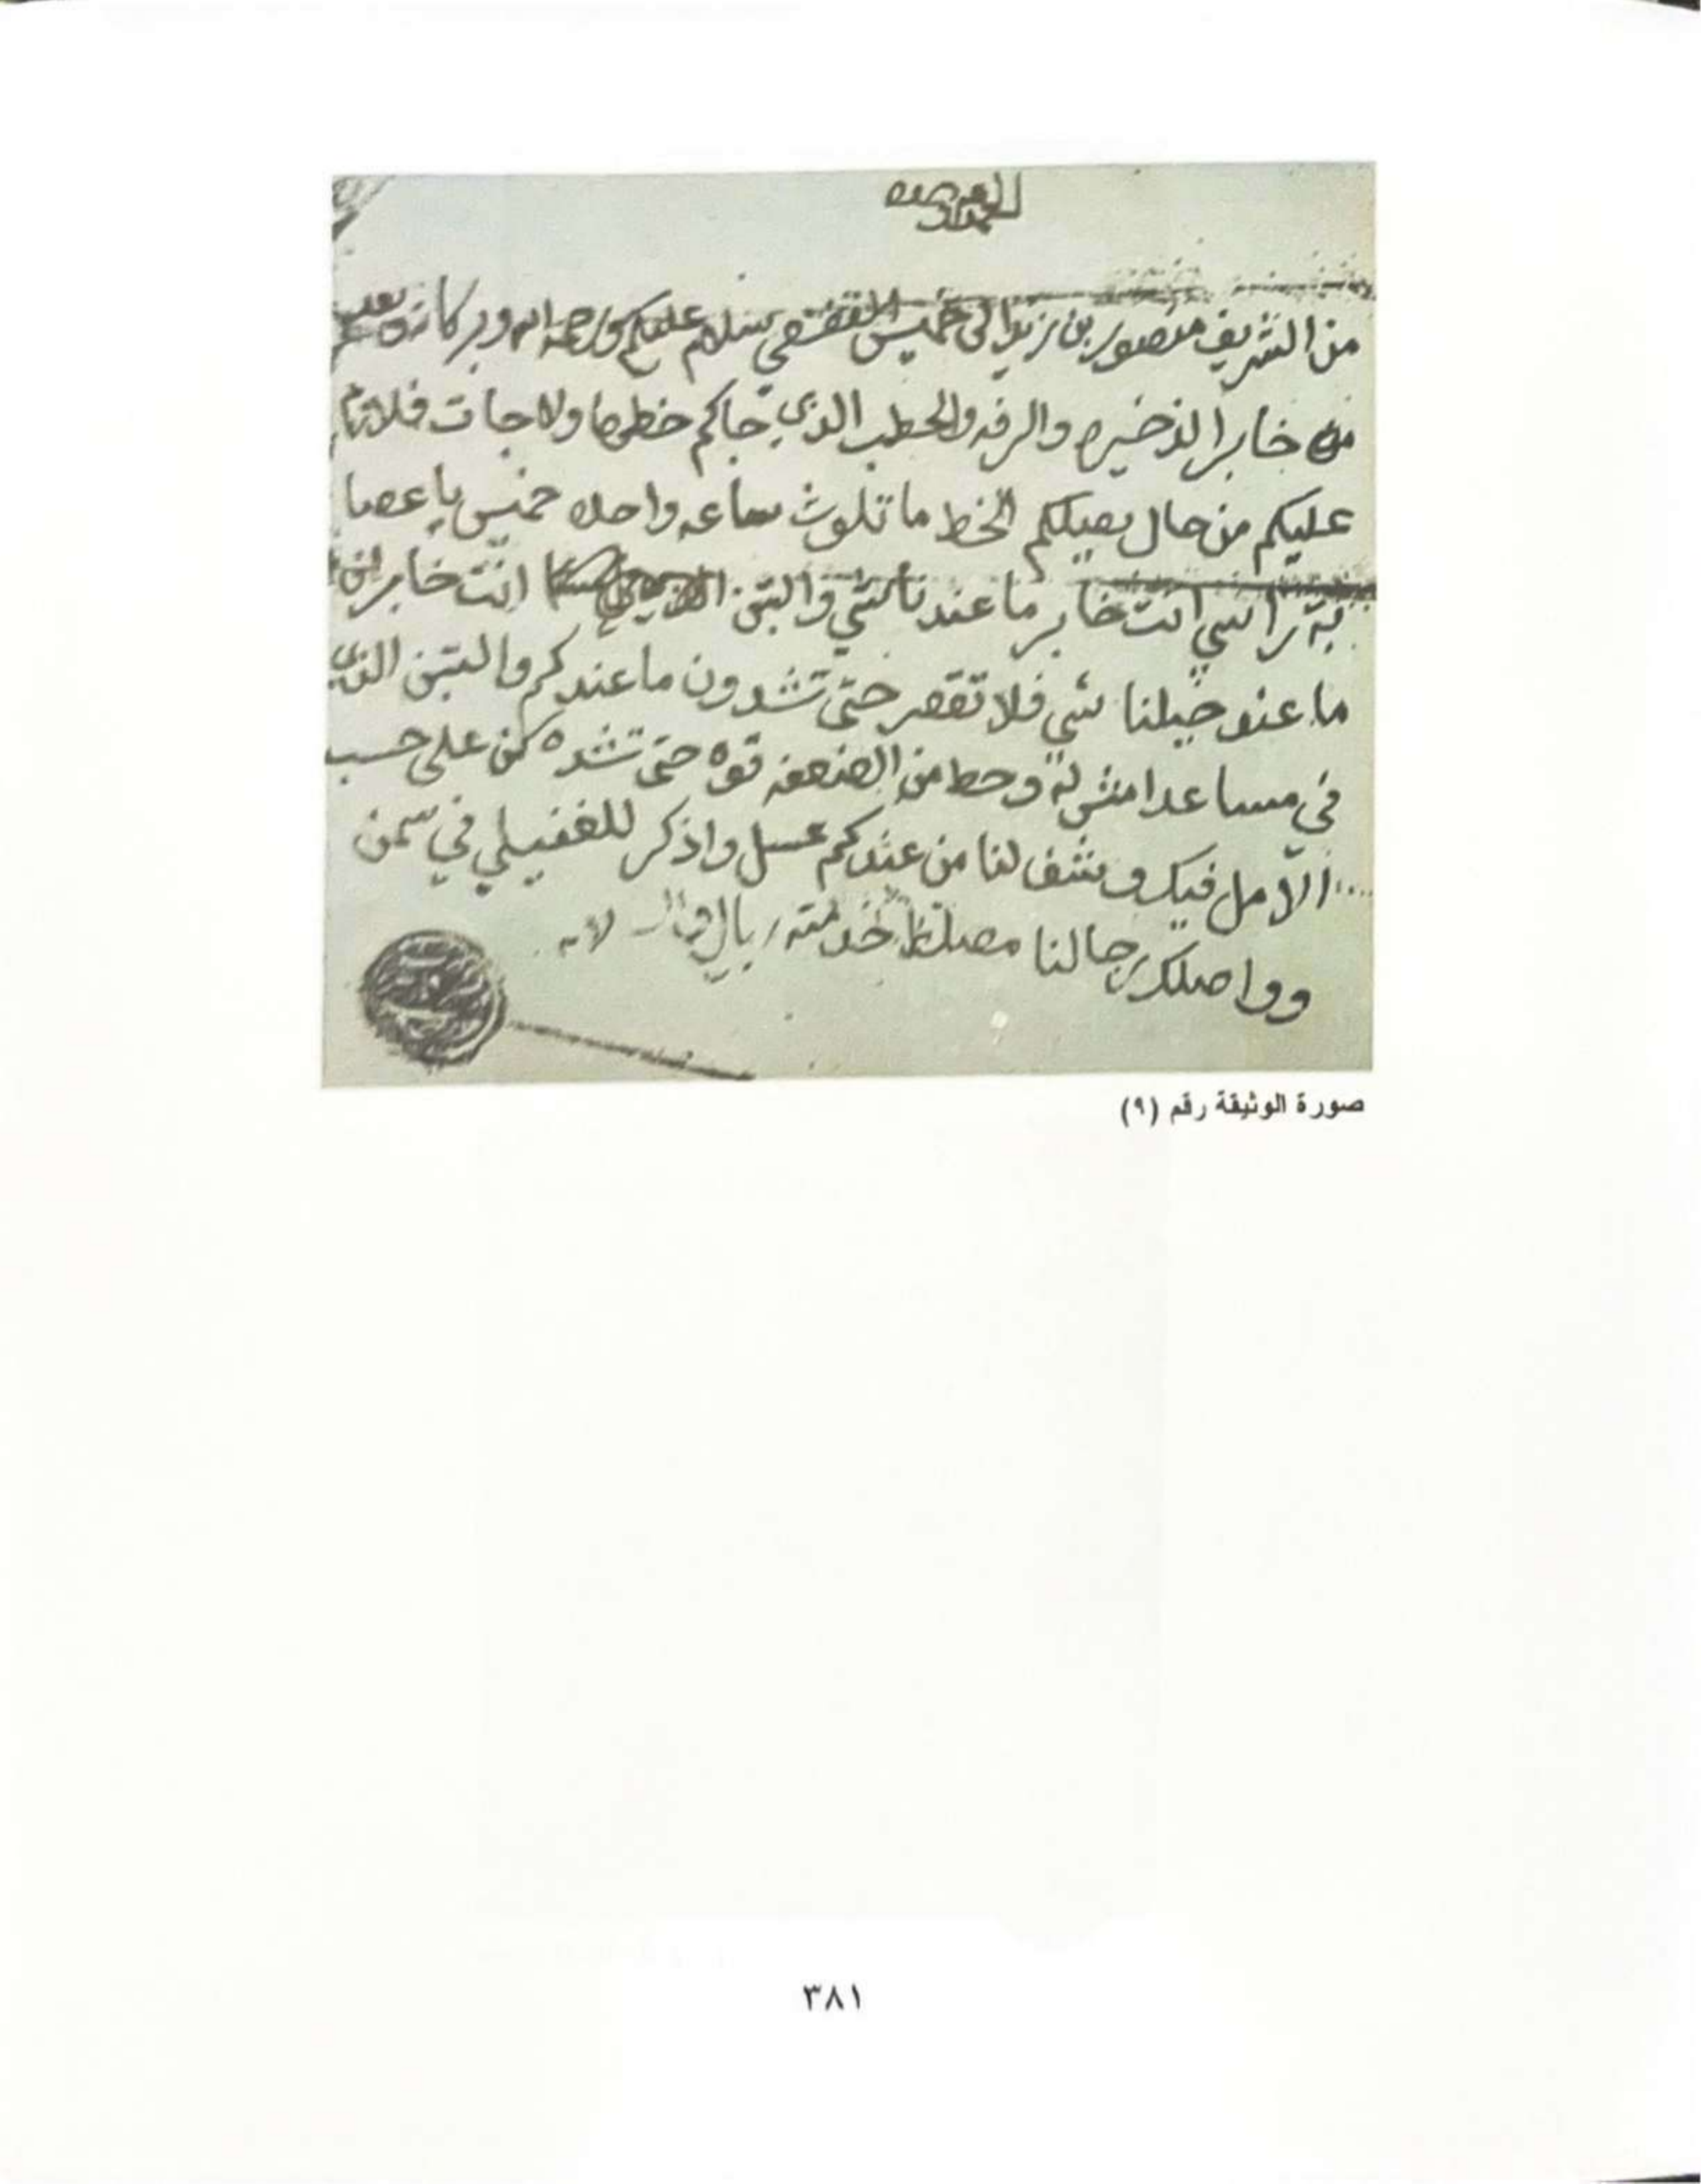 الحمد لله وحده
من الشريف منصور بن زيد الى خميس القثقثي سلام عليكم ورحمة الله وبركاته وبعد
من خابر الذخيره والرفه والحطب الذي جاكم خطها ولا جات فلا
عليكم من حال يصيلكم الخط ما تلوث ساعه واحده خميس يا عصا
بة راسي انت خابر ما عندنا شي والتبن انت خابر ان
ما عند خيلنا شي فلا تقصر حتى تشدون ما عندكم والتبن الذي
في مساعد امش له وحط من الضعف قوه حتى تشده كن على حسب
الأمل فيك وشف لنا من عندكم عسل واذكر للغفيلي في سمن
وواصلك رجالنا مصلط خدمته ريال
صورة الوثيقة رقم (٩)
٣٨١